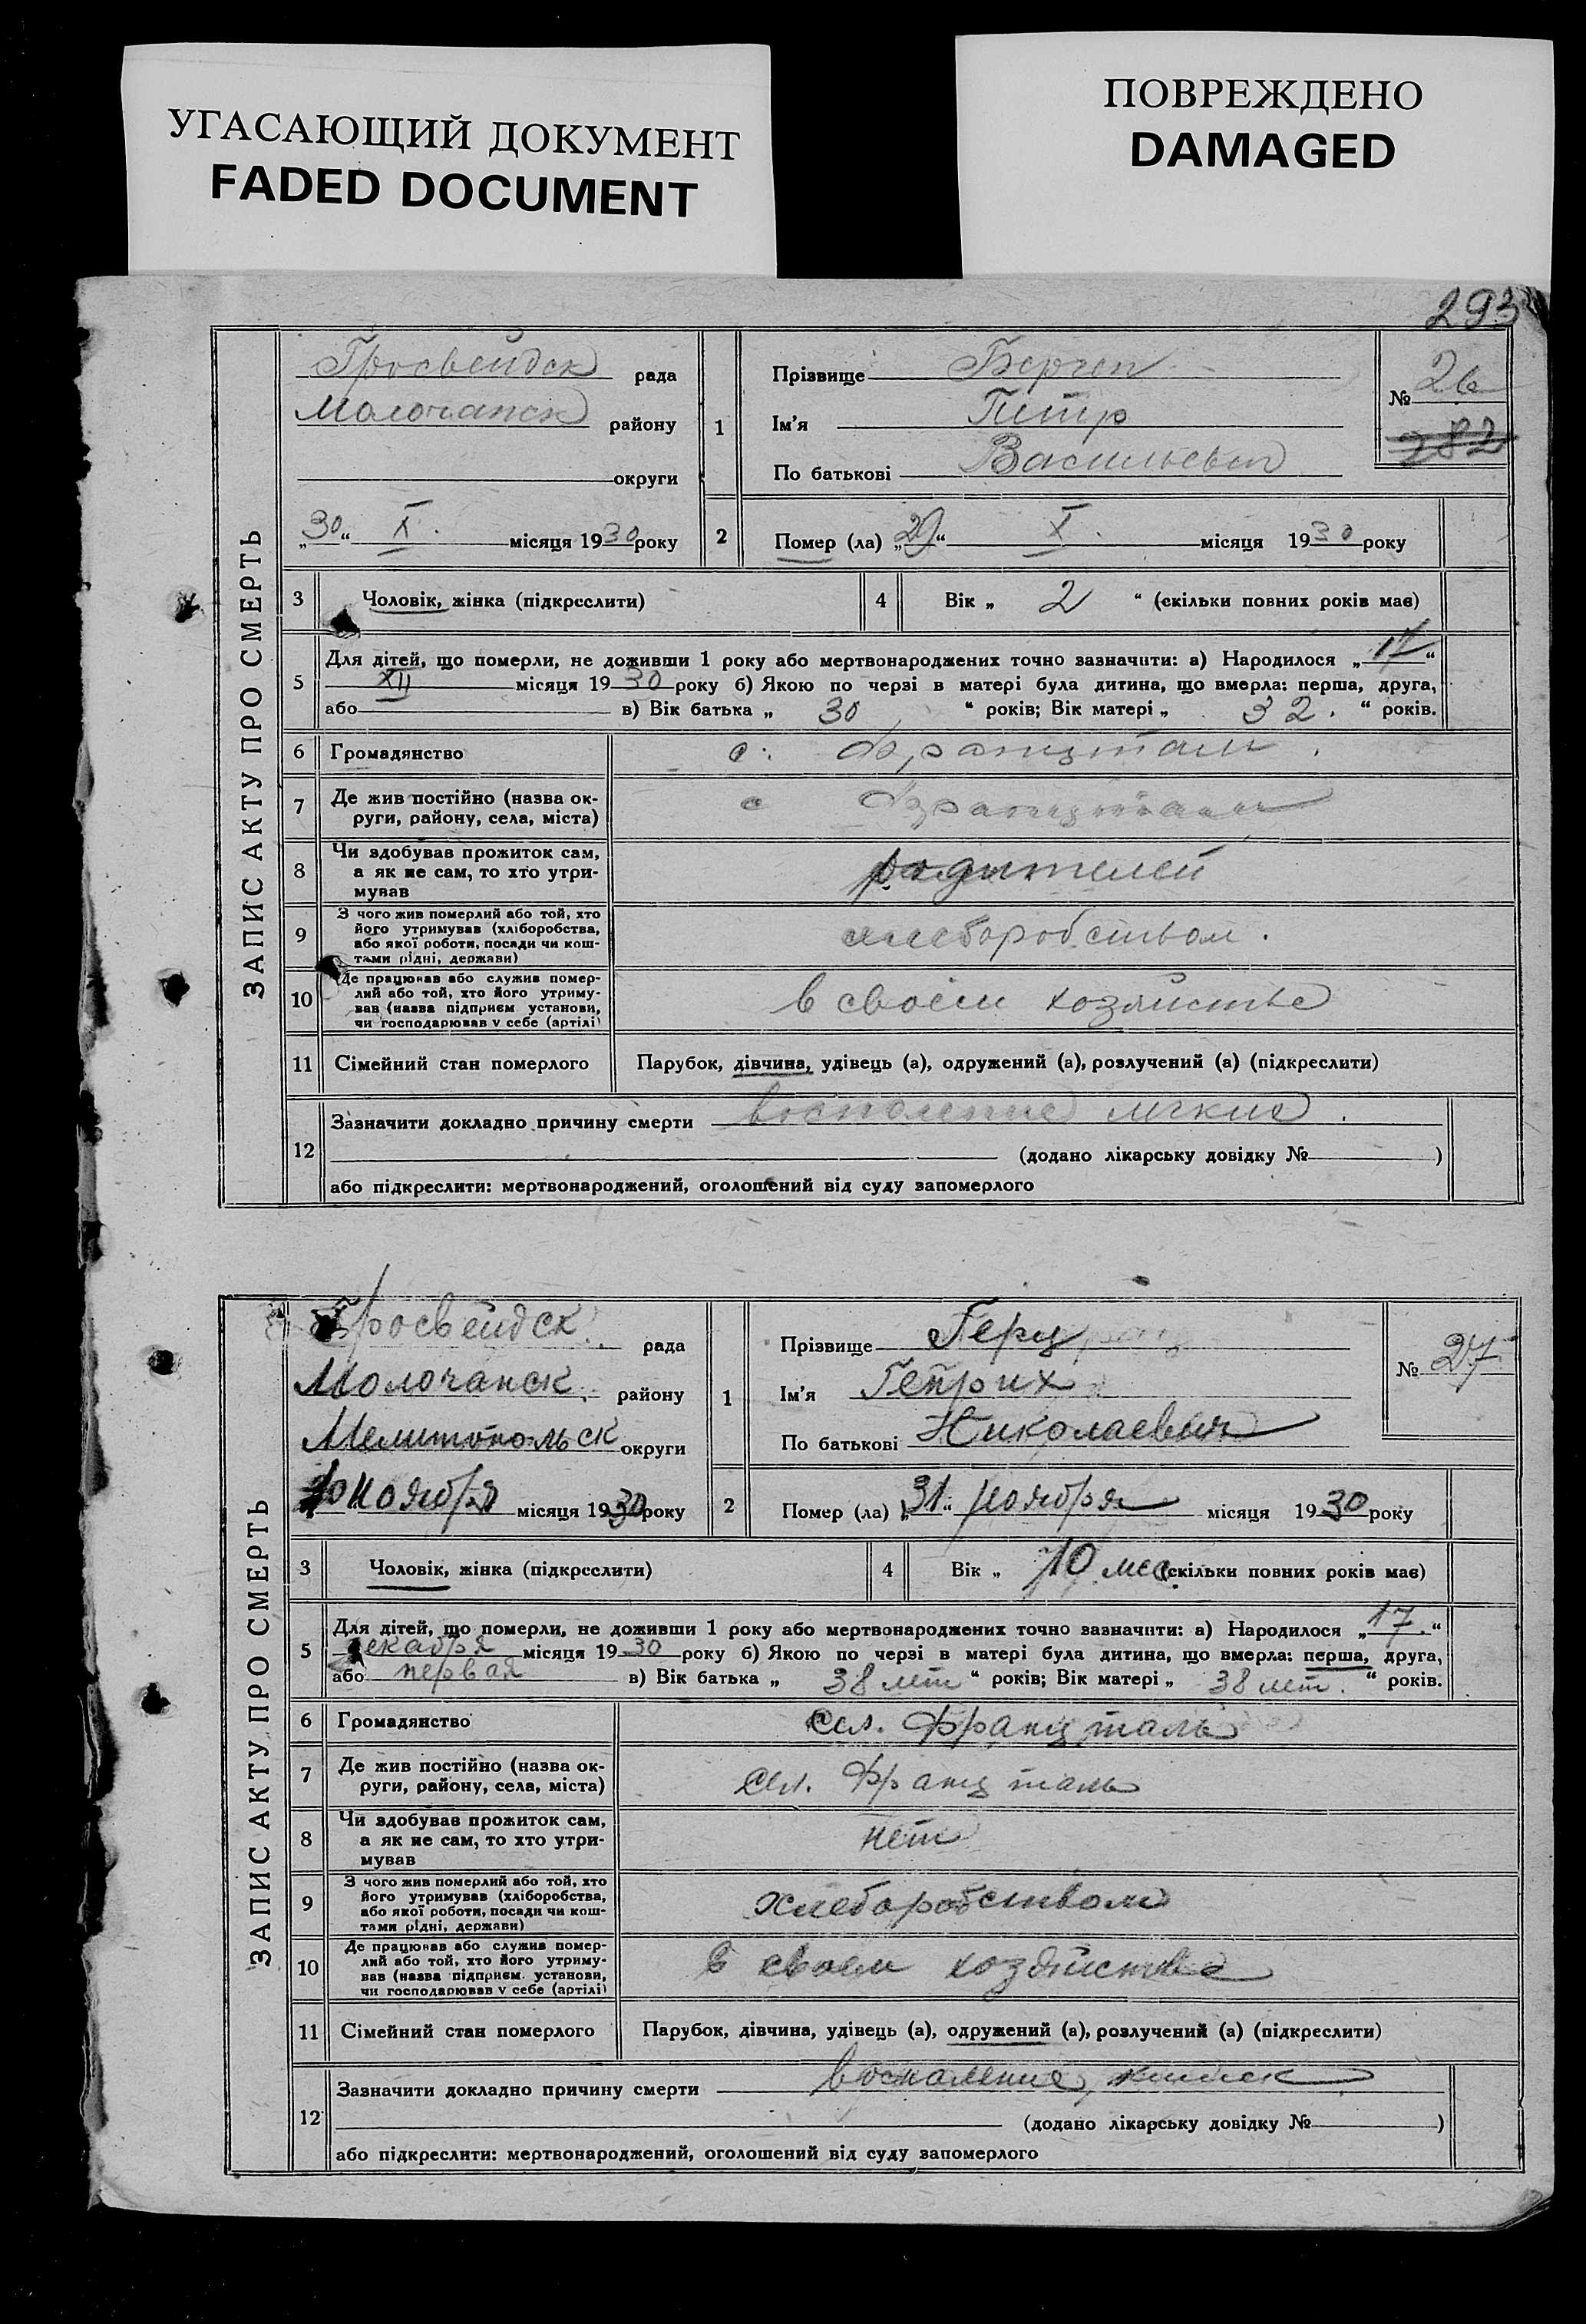 УГАСАЮЩИЙ ДОКУМЕНТ
FADED DOCUMENT
ПОВРЕЖДЕНО
DAMAGED
293
ЗАПИС АКТУ ПРО СМЕРТЬ
Гросвейдск рада
Молочанск району
округи
„30“ X. місяця 1930 року
1
Прізвище
Ім'я Петр
По батькові Васильевич
№ 26
282
2 Помер (ла) „29“ X. місяця 1930 року
3 Чоловік, жінка (підкреслити)
4 Вік „ 2 “ (скільки повних років має)
5 Для дітей, що померли, не доживши 1 року або мертвонароджених точно зазначити: а) Народилося „17“
XII місяця 1930 року б) Якою по черзі в матері була дитина, що вмерла: перша, друга,
або в) Вік батька „ 30 “ років; Вік матері „ 32. “ років.
6 Громадянство с. Францталь.
7 Де жив постійно (назва ок-
руги, району, села, міста) с Францталь
8 Чи здобував прожиток сам,
а як не сам, то хто утри-
мував родителей
9 З чого жив померлий або той, хто
його утримував (хліборобства,
або якої роботи, посади чи кош-
тами рідні, держави) хлеборобством.
10 Де працював або служив помер-
лий або той, хто його утриму-
вав (назва підприєм установи,
чи господарював у себе (артілі) в своем хозяйстве
11 Сімейний стан померлого Парубок, дівчина, удівець (а), одружений (а), розлучений (а) (підкреслити)
12 Зазначити докладно причину смерти воспаление легких.
(додано лікарську довідку № )
або підкреслити: мертвонароджений, оголошений від суду запомерлого
ЗАПИС АКТУ ПРО СМЕРТЬ
Гросвейдск. рада
Молочанск. району
Мелитопольск округи
ноября місяця 1930 року
1
Прізвище Герц
Ім'я Генрих
По батькові Николаевич
№ 27
2 Помер (ла) „31“ ноября місяця 1930 року
3 Чоловік, жінка (підкреслити)
4 Вік „ 10 мес. (скільки повних років має)
5 Для дітей, що померли, не доживши 1 року або мертвонароджених точно зазначити: а) Народилося „17.“
декабря місяця 1930 року б) Якою по черзі в матері була дитина, що вмерла: перша, друга,
або первая в) Вік батька „ 38 лет “ років; Вік матері „ 38 лет. “ років.
6 Громадянство сел. Францталь
7 Де жив постійно (назва ок-
руги, району, села, міста) сел. Францталь
8 Чи здобував прожиток сам,
а як не сам, то хто утри-
мував нет
9 З чого жив померлий або той, хто
його утримував (хліборобства,
або якої роботи, посади чи кош-
тами рідні, держави) хлеборобством
10 Де працював або служив помер-
лий або той, хто його утриму-
вав (назва підприєм. установи,
чи господарював у себе (артілі) в своем хозяйстве
11 Сімейний стан померлого Парубок, дівчина, удівець (а), одружений (а), розлучений (а) (підкреслити)
12 Зазначити докладно причину смерти воспаление кишек
(додано лікарську довідку № )
або підкреслити: мертвонароджений, оголошений від суду запомерлого